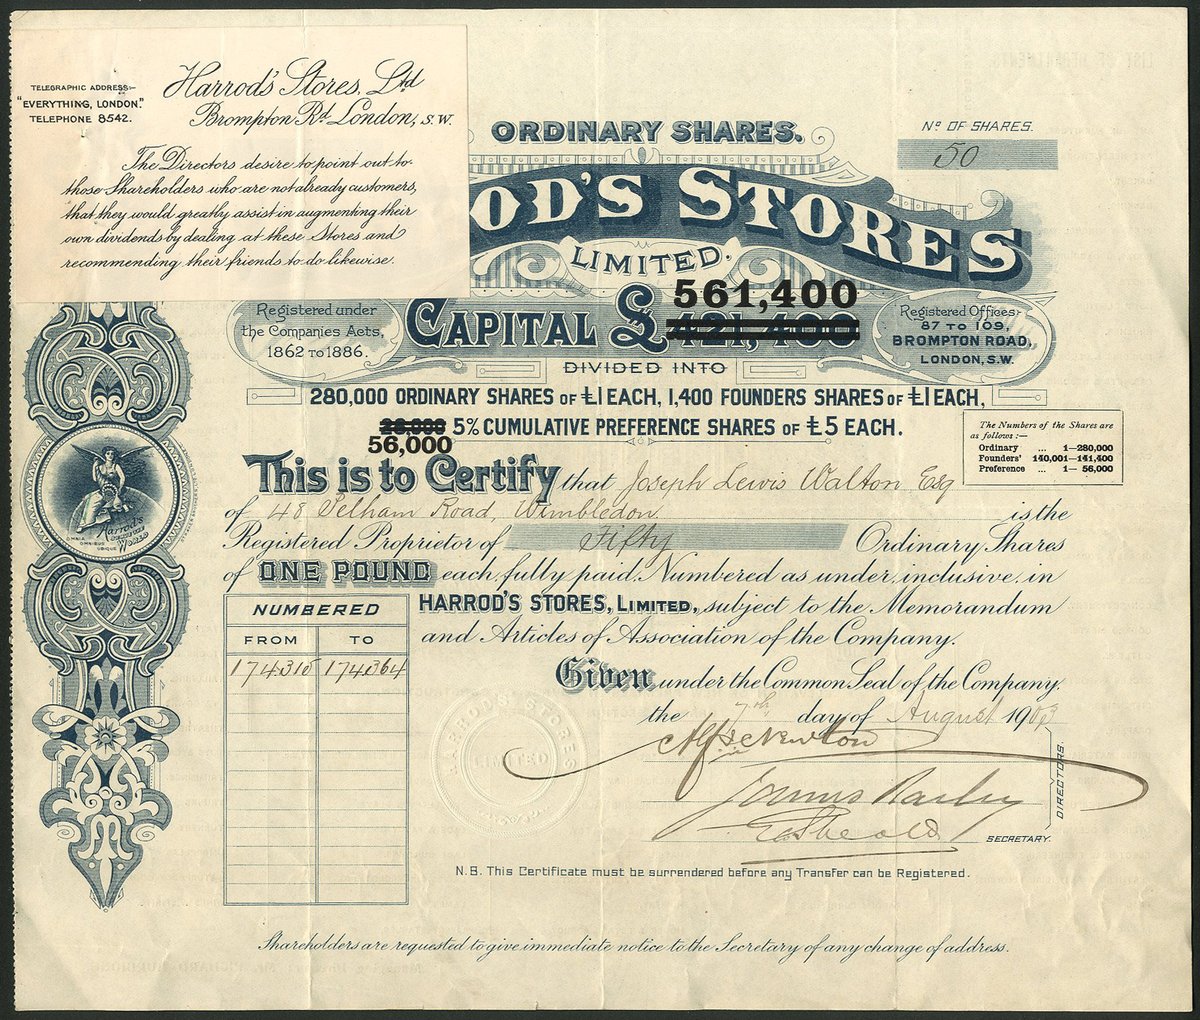 TELEGRAPHIC ADDRESS:-
"EVERYTHING, LONDON."
TELEPHONE 8542.
Harrod's Stores, Ltd
Brompton Rd London, S.W.
The Directors desire to point out to
those Shareholders who are not already customers,
that they would greatly assist in augmenting their
own dividends by dealing at these Stores and
recommending their friends to do likewise.
ORDINARY SHARES.
No OF SHARES.
50
ROD'S STORES
LIMITED.
Registered under
the Companies Acts,
1862 TO 1886.
CAPITAL £ 561,400
421,400
Registered Offices:
87 TO 109,
BROMPTON ROAD,
LONDON, S.W.
DIVIDED INTO
280,000 ORDINARY SHARES OF £1 EACH, 1,400 FOUNDERS SHARES OF £1 EACH,
28,000 5% CUMULATIVE PREFERENCE SHARES OF £5 EACH.
56,000
The Numbers of the Shares are
as follows:—
Ordinary ... 1—280,000
Founders' 140,001—141,400
Preference ... 1— 56,000
This is to Certify that Joseph Lewis Walton Esq
of 48 Pelham Road, Wimbledon is the
Registered Proprietor of Fifty Ordinary Shares
of ONE POUND each, fully paid, Numbered as under, inclusive, in
HARROD'S STORES, LIMITED, subject to the Memorandum
and Articles of Association of the Company.
NUMBERED
FROM TO
174315 174364
Harrod's
WORLD
OMNIA
OMNIBUS
UBIQUE
Given under the Common Seal of the Company.
the 7th day of August 1903
HARROD'S STORES
LIMITED
Alfred Newton
DIRECTORS.
SECRETARY.
N.B. This Certificate must be surrendered before any Transfer can be Registered.
Shareholders are requested to give immediate notice to the Secretary of any change of address.